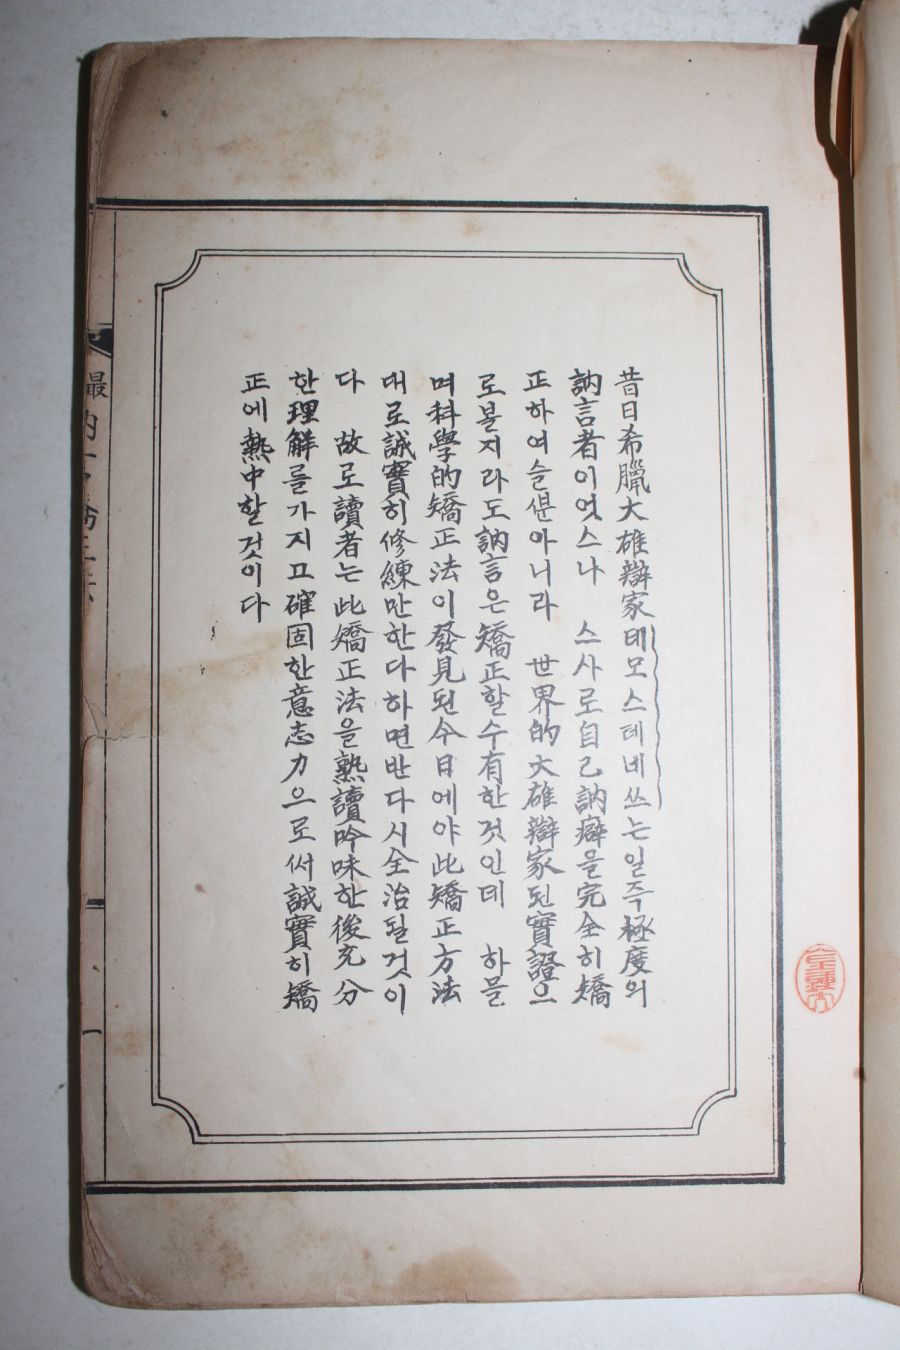 昔日希臘大雄辯家테모스데네쓰는일즉極度의
訥言者이엇스나 스사로自己訥癖을完全히矯
正하여슬 아니라 世界的大雄辯家된實證으
로볼지라도訥言은矯正할수有한것인데 하믈
며科學的矯正法이發見된今日에야此矯正方法
대로誠實히修練만한다하면반다시全治될것이
다 故로讀者는此矯正法을熟讀吟味한後充分
한理解를가지고確固한意志力으로써誠實히矯
正에熱中할것이다
一